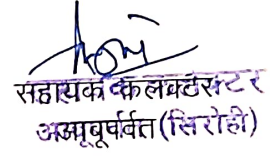 सहायक कलक्टर
आबूपर्वत (सिरोही)